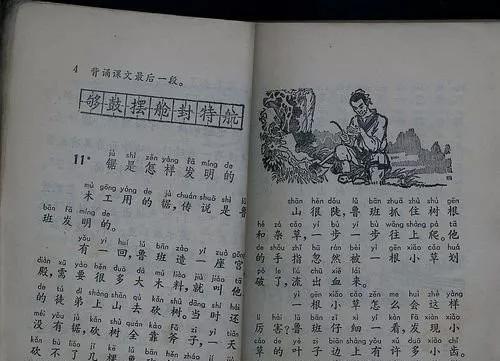 4 背诵课文最后一段。
够鼓摆舱封特航
jù shì zěn yàng fā míng de
11* 锯是怎样发明的
mù gōng yòng de jù chuán shuō shì lǔ
木工用的锯,传说是鲁
bān fā míng de
班发明的。
yǒu yì huí lǔ bān zào yí zuò gōng
有一回,鲁班造一座宫
diàn xū yào hěn duō dà mù liào jiù jiào tā
殿,需要很多大木料,就叫他
de tú dì shàng shān qù kǎn shù dāng shí hái
的徒弟上山去砍树。当时还
méi yǒu jù kǎn shù quán kào fǔ zi yì tiān
没有锯,砍树全靠斧子,一天
砍不了几棵
shān hěn dǒu lǔ bān zhuā zhù shù gēn
山很陡,鲁班抓住树根
hé zá cǎo yí bù yí bù wǎng shàng pá tā
和杂草,一步一步往上爬。他
de shǒu zhǐ hū rán bèi yì gēn xiǎo cǎo huá
的手指忽然被一根小草划
pò le liú chū xiě lái
破了,流出血来。
yì gēn xiǎo cǎo zěn me huì zhè yàng
一根小草怎么会这样
lì hai lǔ bān zǐ xì yí kàn fā xiàn xiǎo
厉害?鲁班仔细一看,发现小
cǎo de yè zi biān shàng yǒu xǔ duō xiǎo
草的叶子边上有许多小